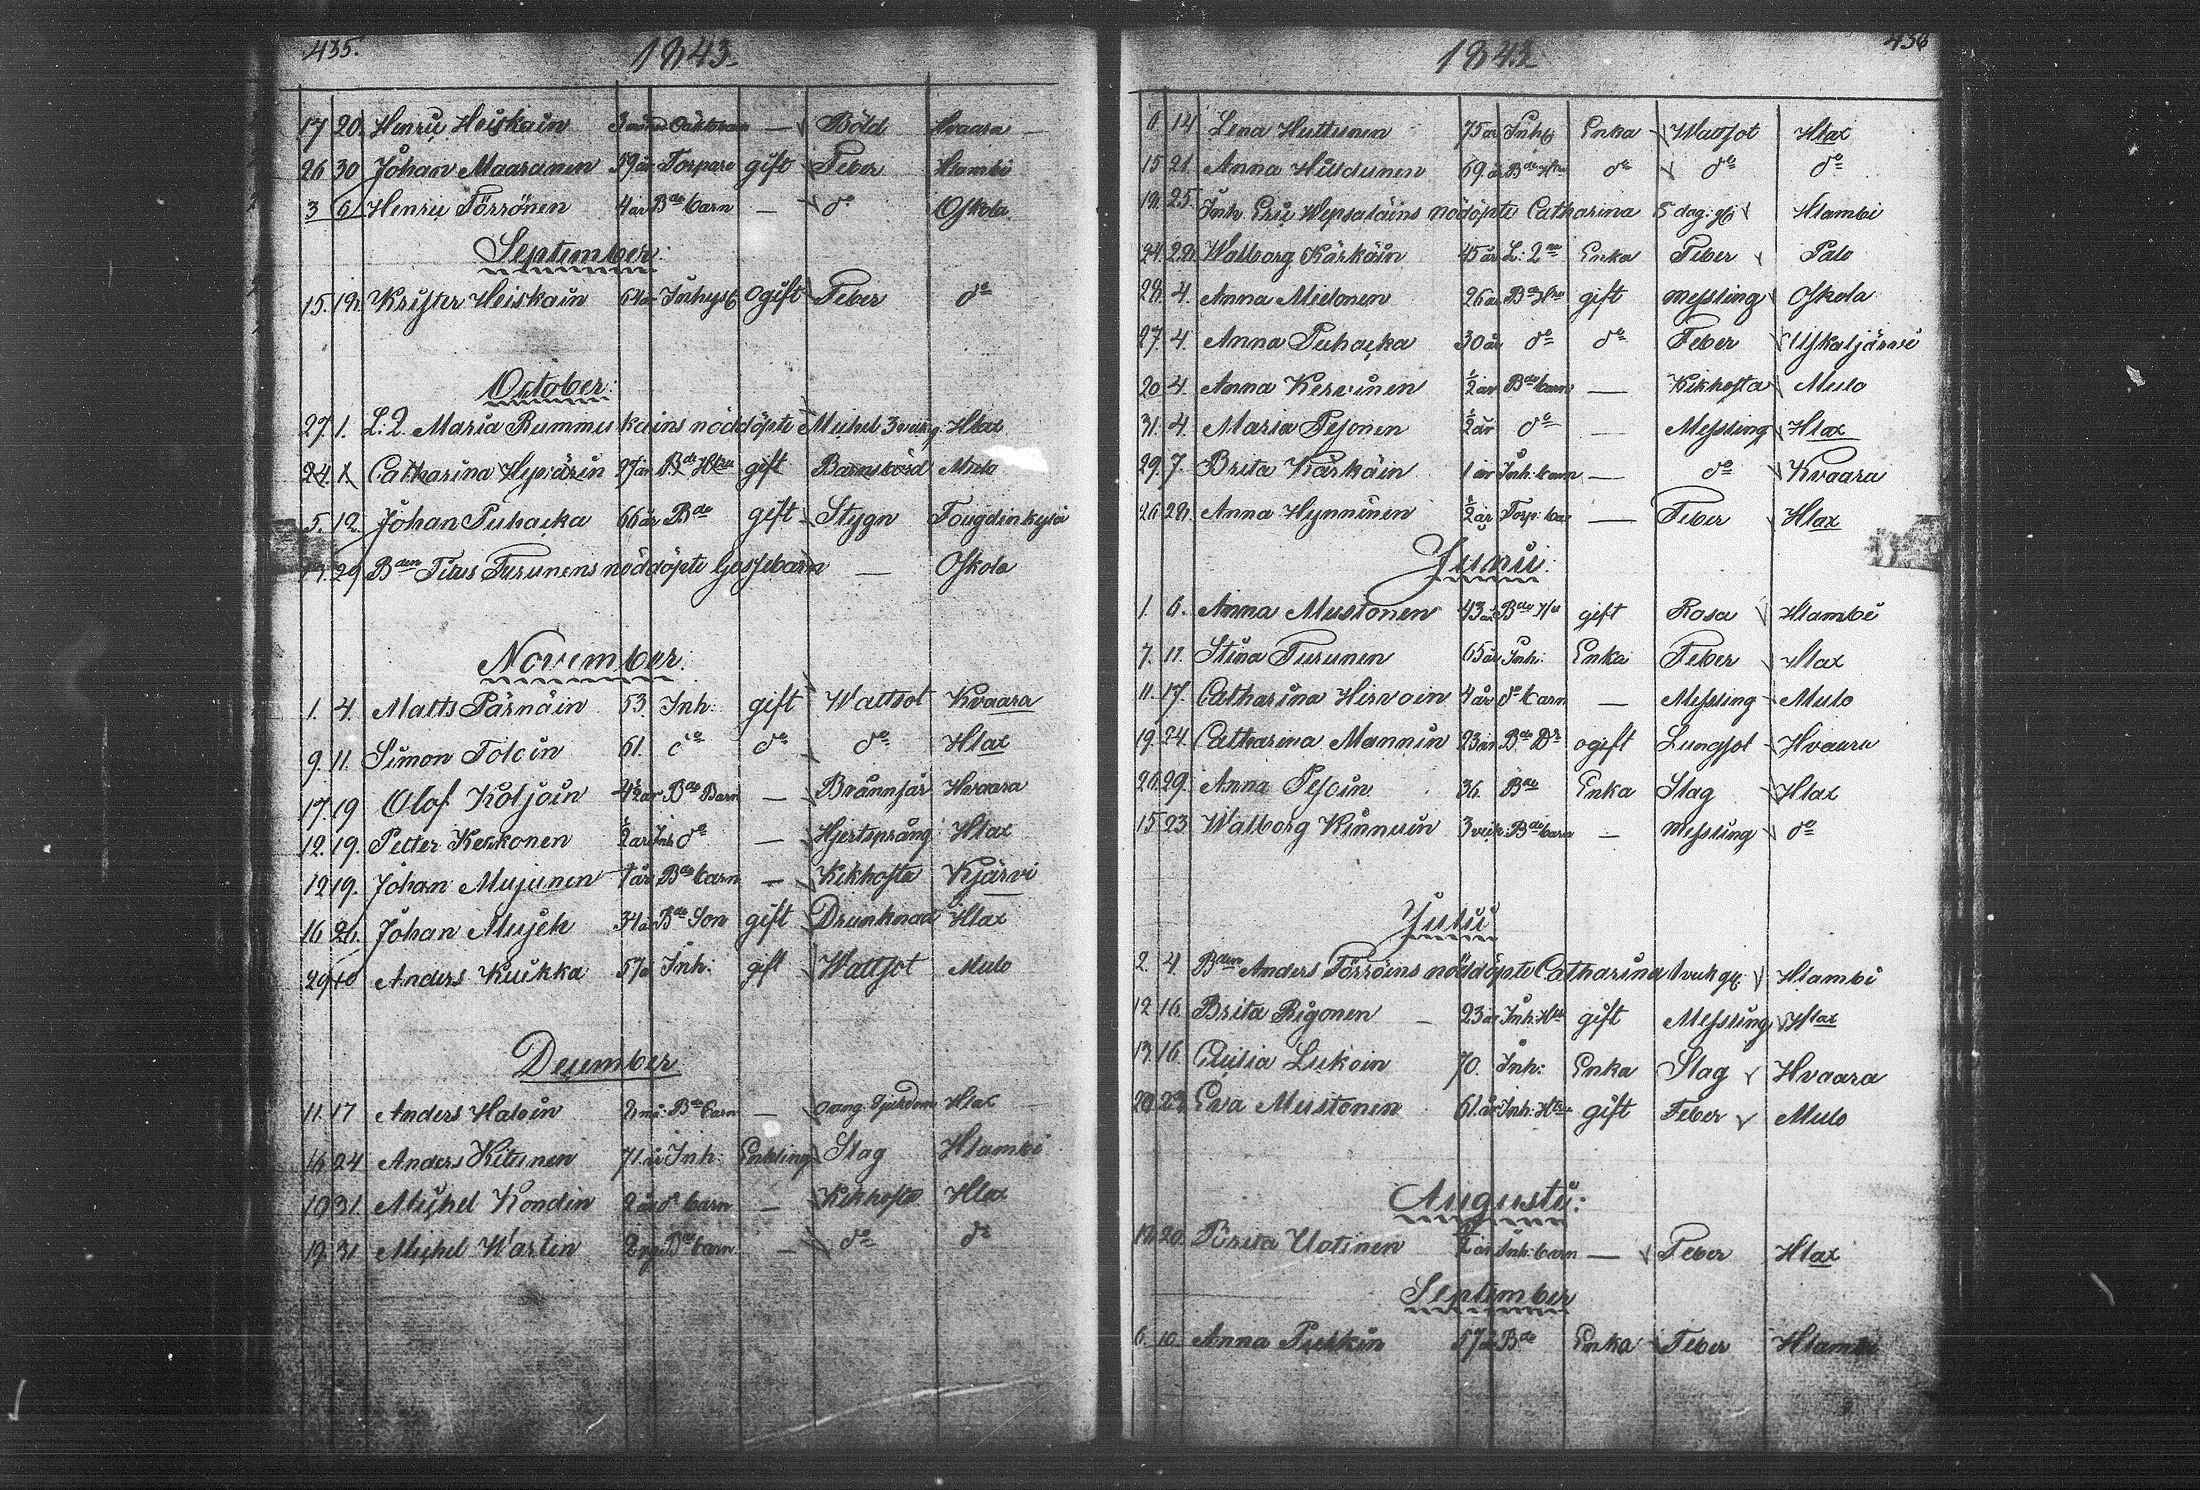 435.
1843.
17 20. Henric Heiskain 3 Böld Hvaara
26 30 Johan Maaranen 59 år Torpare gift Feber Hlambi
3 6 Henric Törrönen 4 år Bde barn — do Oskola
September.
15. 18. Krister Heiskain 64 år Inhysg Ogift Feber do
October:
27. 1. L: 2. Maria Rummukains nöddöpte Michel 3 veck g. Hlax
24. 1. Catharina Hyvärin 27 år Bde Hru gift Barnsbörd Mulo
5. 12. Johan Puhacka 66 år Bde gift Stygn Tougdinkylä
29. Bden Titus Turunens nöddöpte Gossebarn — Oskola
November.
1. 4. Matts Pärnäin 53. Inh: gift Wattsot Kvaara
9. 11. Simon Toloin 61. do do do Hlax
17. 19 Olof Koljoin 4½ år Bde Barn — Brännsår Hvaara
12. 19. Petter Kerkonen ½ år Inh do — Hjertsprång Hlax
12 19. Johan Mujunen 1 år Bde barn — Kikhosta Kjärvi
16 26. Johan Mujek 34 år Bde Son gift Drunknad Hlax
29 10 Anders Kukka 57 å Inh: gift Wattsot Mulo
December
11. 17 Anders Haloin 2 må: Bde barn — Hlax
16 24 Anders Kitunen 71 år Inh: Enkling Slag Hlambi
10 31. Michel Kondin 2 år do barn — Kikhosta Hlax
19. 31. Michel Wartin Bde barn — do do
436
1843.
6 14 Lena Huttunen 75 år Inhg Enka Wattsot Hlax
15 21. Anna Hildunen 69 år Bde Hru do do do
18. 25. Inh. Eric Wepsäläins nödöpte Catharina 5 dag: gl Hlambi
24. 28. Walborg Kärkäin 45 år L: 2ns Enka Feber Palo
28. 4. Anna Mielonen 26 år Bde Hru gift Messling Oskola
27. 4. Anna Puhacka 30 år do do Feber Uskaljärvi
20 4. Anna Kervinen ½ år Bde barn — Kikhosta Mulo
31. 4. Maria Pesonen ½ år do — Messling Hlax
29. 7. Brita Kärkäin 1 år Inh: barn — do Kvaara
26 28. Anna Hynninen ½ år Torp: ba — Feber Hlax
Junii:
1. 6. Anna Mustonen 43 år Bde gift Rosa Hlambi
7. 11. Stina Turunen 65 år Inh: Enka Feber Hlax
11. 17. Catharina Hirvoin 4 år do barn — Messling Mulo
19. 24. Catharina Mannin 23 år Bde Dr ogift Lungsot Hvaara
26 29. Anna Pesoin 36. Bde Enka Slag Hlax
15 23. Walborg Kinnuin 3 veck Bde barn — Messling do
Julii
2. 4. Bden Anders Törröins nöddöpte Catharina 1 veck gl: Hlambi
12 16. Brita Rigonen — 23 år Inh: Hu gift Messling Hlax
13. 16. Cecilia Lukoin 70. Inh: Enka Slag Hvaara
20. 23. Eva Mustonen 61 år Inh: gift Feber Mulo
Augusti:
18. 20. Brita Uotinen ½ år Inh: barn — Feber Hlax
September
6. 10. Anna Puckin 57 å Bde Enka Feber Hlambi